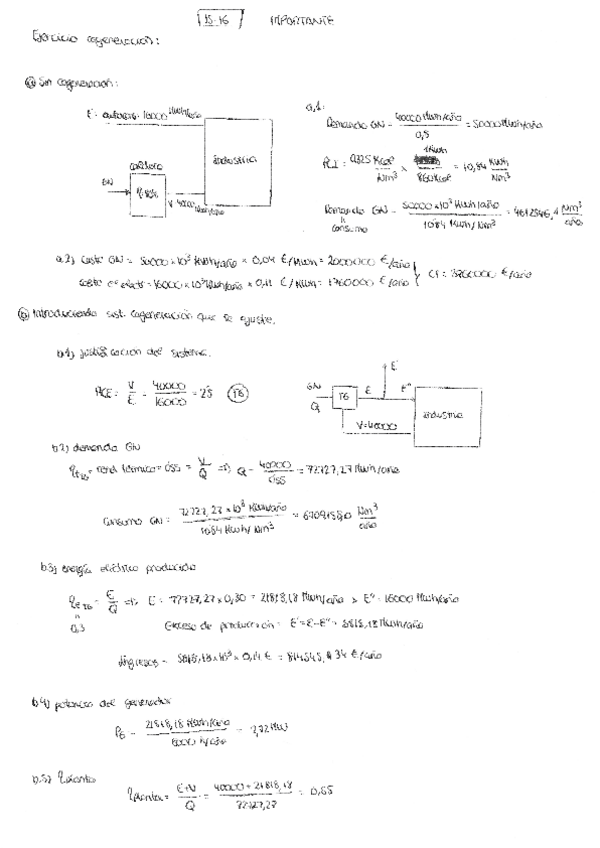 15-16 IMPORTANTE
Ejercicio cogeneración:
a) Sin cogeneración:
E = 16000 Mwh/año
industria
caldera
GN
V = 40000 Mwh/año
a.1:
Demanda GN = 40000 Mwh/año / 0,8 = 50000 Mwh/año
PCI = 9325 Kcal/Nm³ × 1 Kwh / 860 Kcal = 10,84 Kwh/Nm³
Demanda GN = 50000 × 10³ Kwh/año / 10'84 Kwh/Nm³ = Nm³/año
consumo
a.2) Coste GN = 50000 × 10³ Kwh/año × 0,04 €/Kwh = 2000000 €/año
coste e⁻ electr = 16000 × 10³ Kwh/año × 0,11 €/Kwh = 1760000 €/año } CT = 3760000 €/año
b) Introduciendo sist. cogeneración que se ajuste.
b.1) justificación del sistema.
RCE = V/E = 40000/16000 = 2'5 TG
E'
GN
Q
TG
E
E''
V=40000
industria
b.2) demanda GN
η TG = rend térmico = 0'55 = V/Q => Q = 40000/0'55 = 72727,27 Mwh/año
Consumo GN = 72727,27 × 10³ Kwh/año / 10'84 Kwh/Nm³ = Nm³/año
b.3) energía eléctrica producida
η E TG = E/Q => E = 72727,27 × 0,30 = 21818,18 Mwh/año > E'' = 16000 Mwh/año
0,3
Exceso de producción: E' = E - E'' = 5818,18 Mwh/año
Ingresos = 5818,18 × 10³ × 0,14 € = 814545, 34 €/año
b.4) potencia del generador
PE = 21818,18 Mwh/año / 8000 h/año = 2,72 MW
b.5) η planta
η planta = E+V/Q = 40000 + 21818,18 / 72727,27 = 0,85